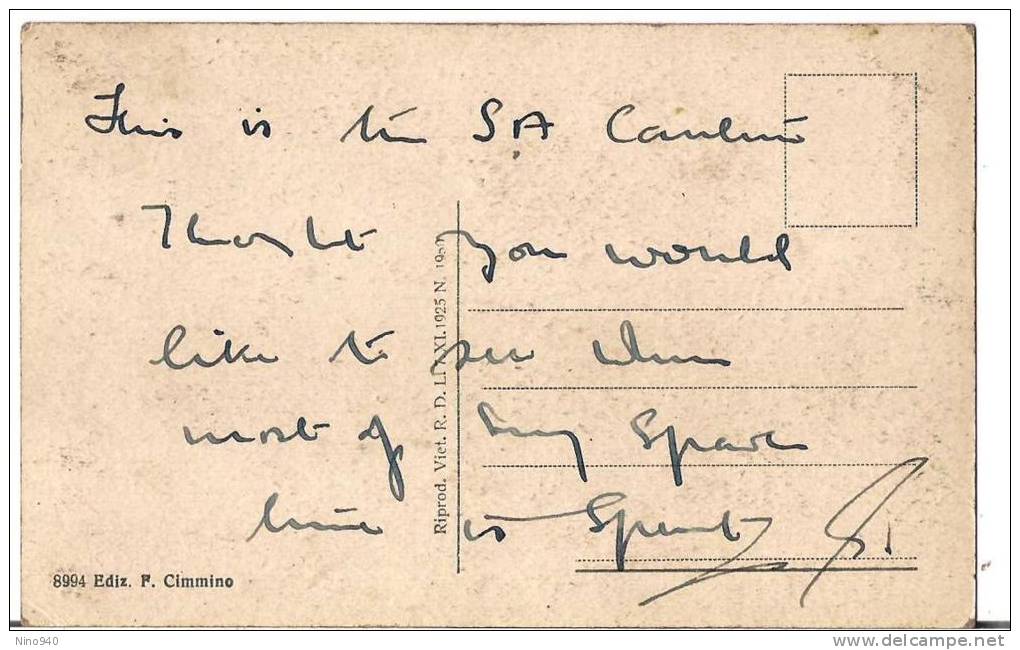 This is the S.A Canteen
Thought you would
like to see where
most of my spare
time is spent
Riprod. Viet. R. D. L. XI.1925 N. 19
8994 Ediz. F. Cimmino
Nino940
delcampe.net